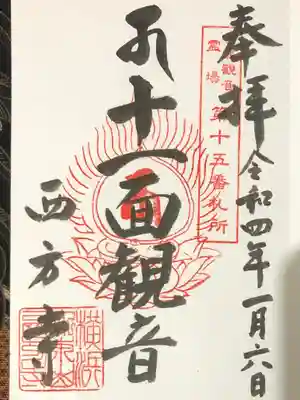 奉拝
令和四年一月六日
観音
霊場
第十五番札所
十一面観音
西方寺
横浜